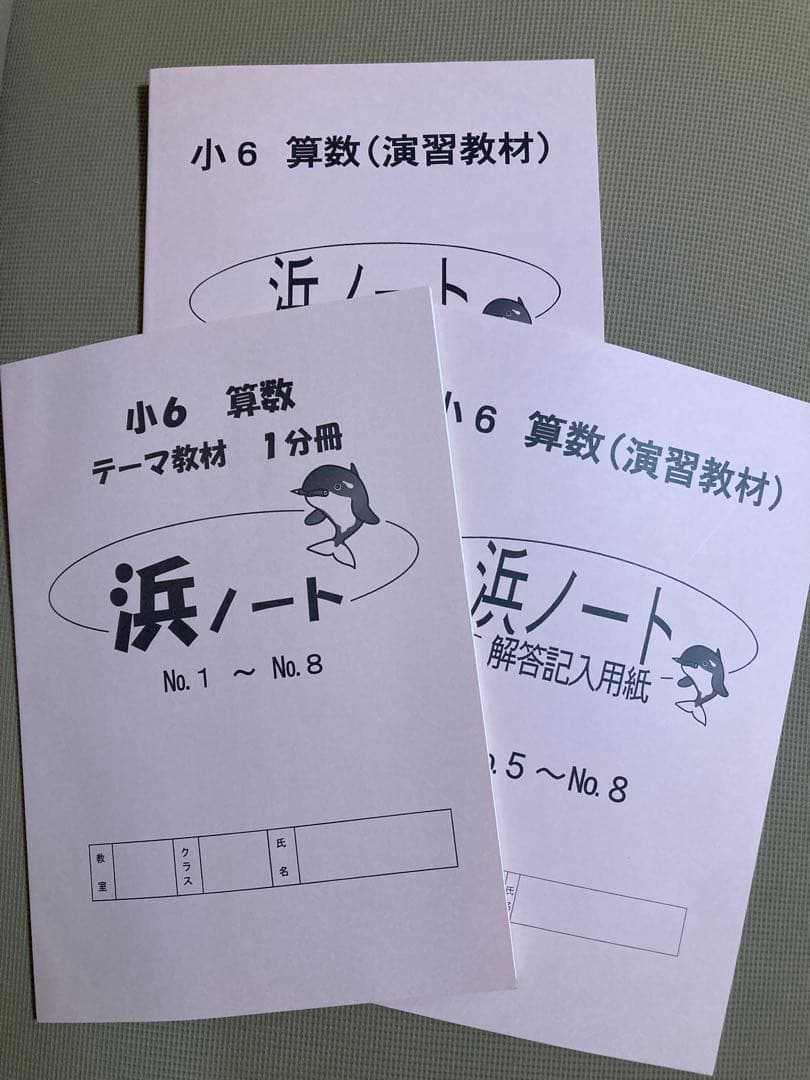 小6 算数(演習教材)
浜ノート
小6 算数
テーマ教材 1分冊
浜ノート
No.1 ～ No.8
教室
クラス
氏名
小6 算数(演習教材)
浜ノート
解答記入用紙
No.5 ～No.8
氏名